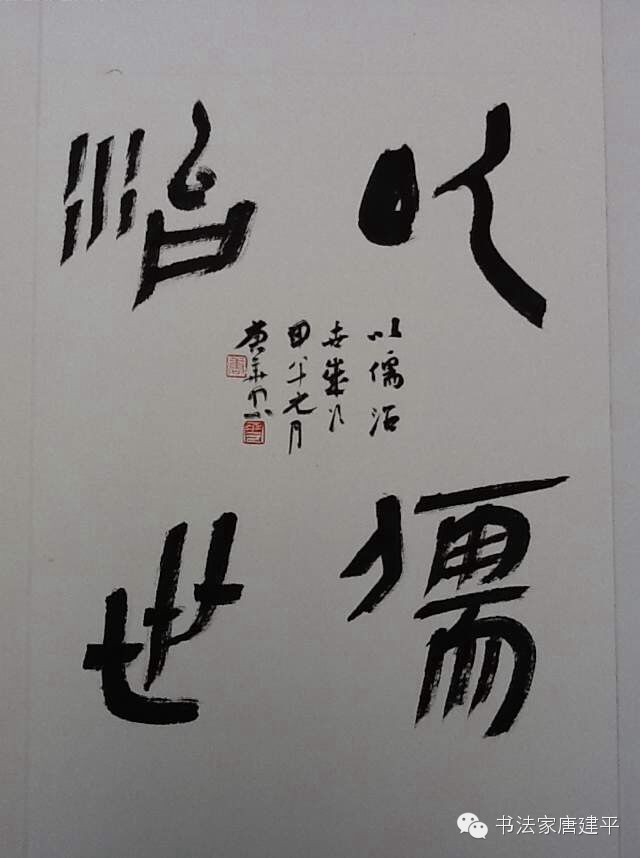 以儒
治世
以儒治
世岁次
甲午月
书法家唐建平